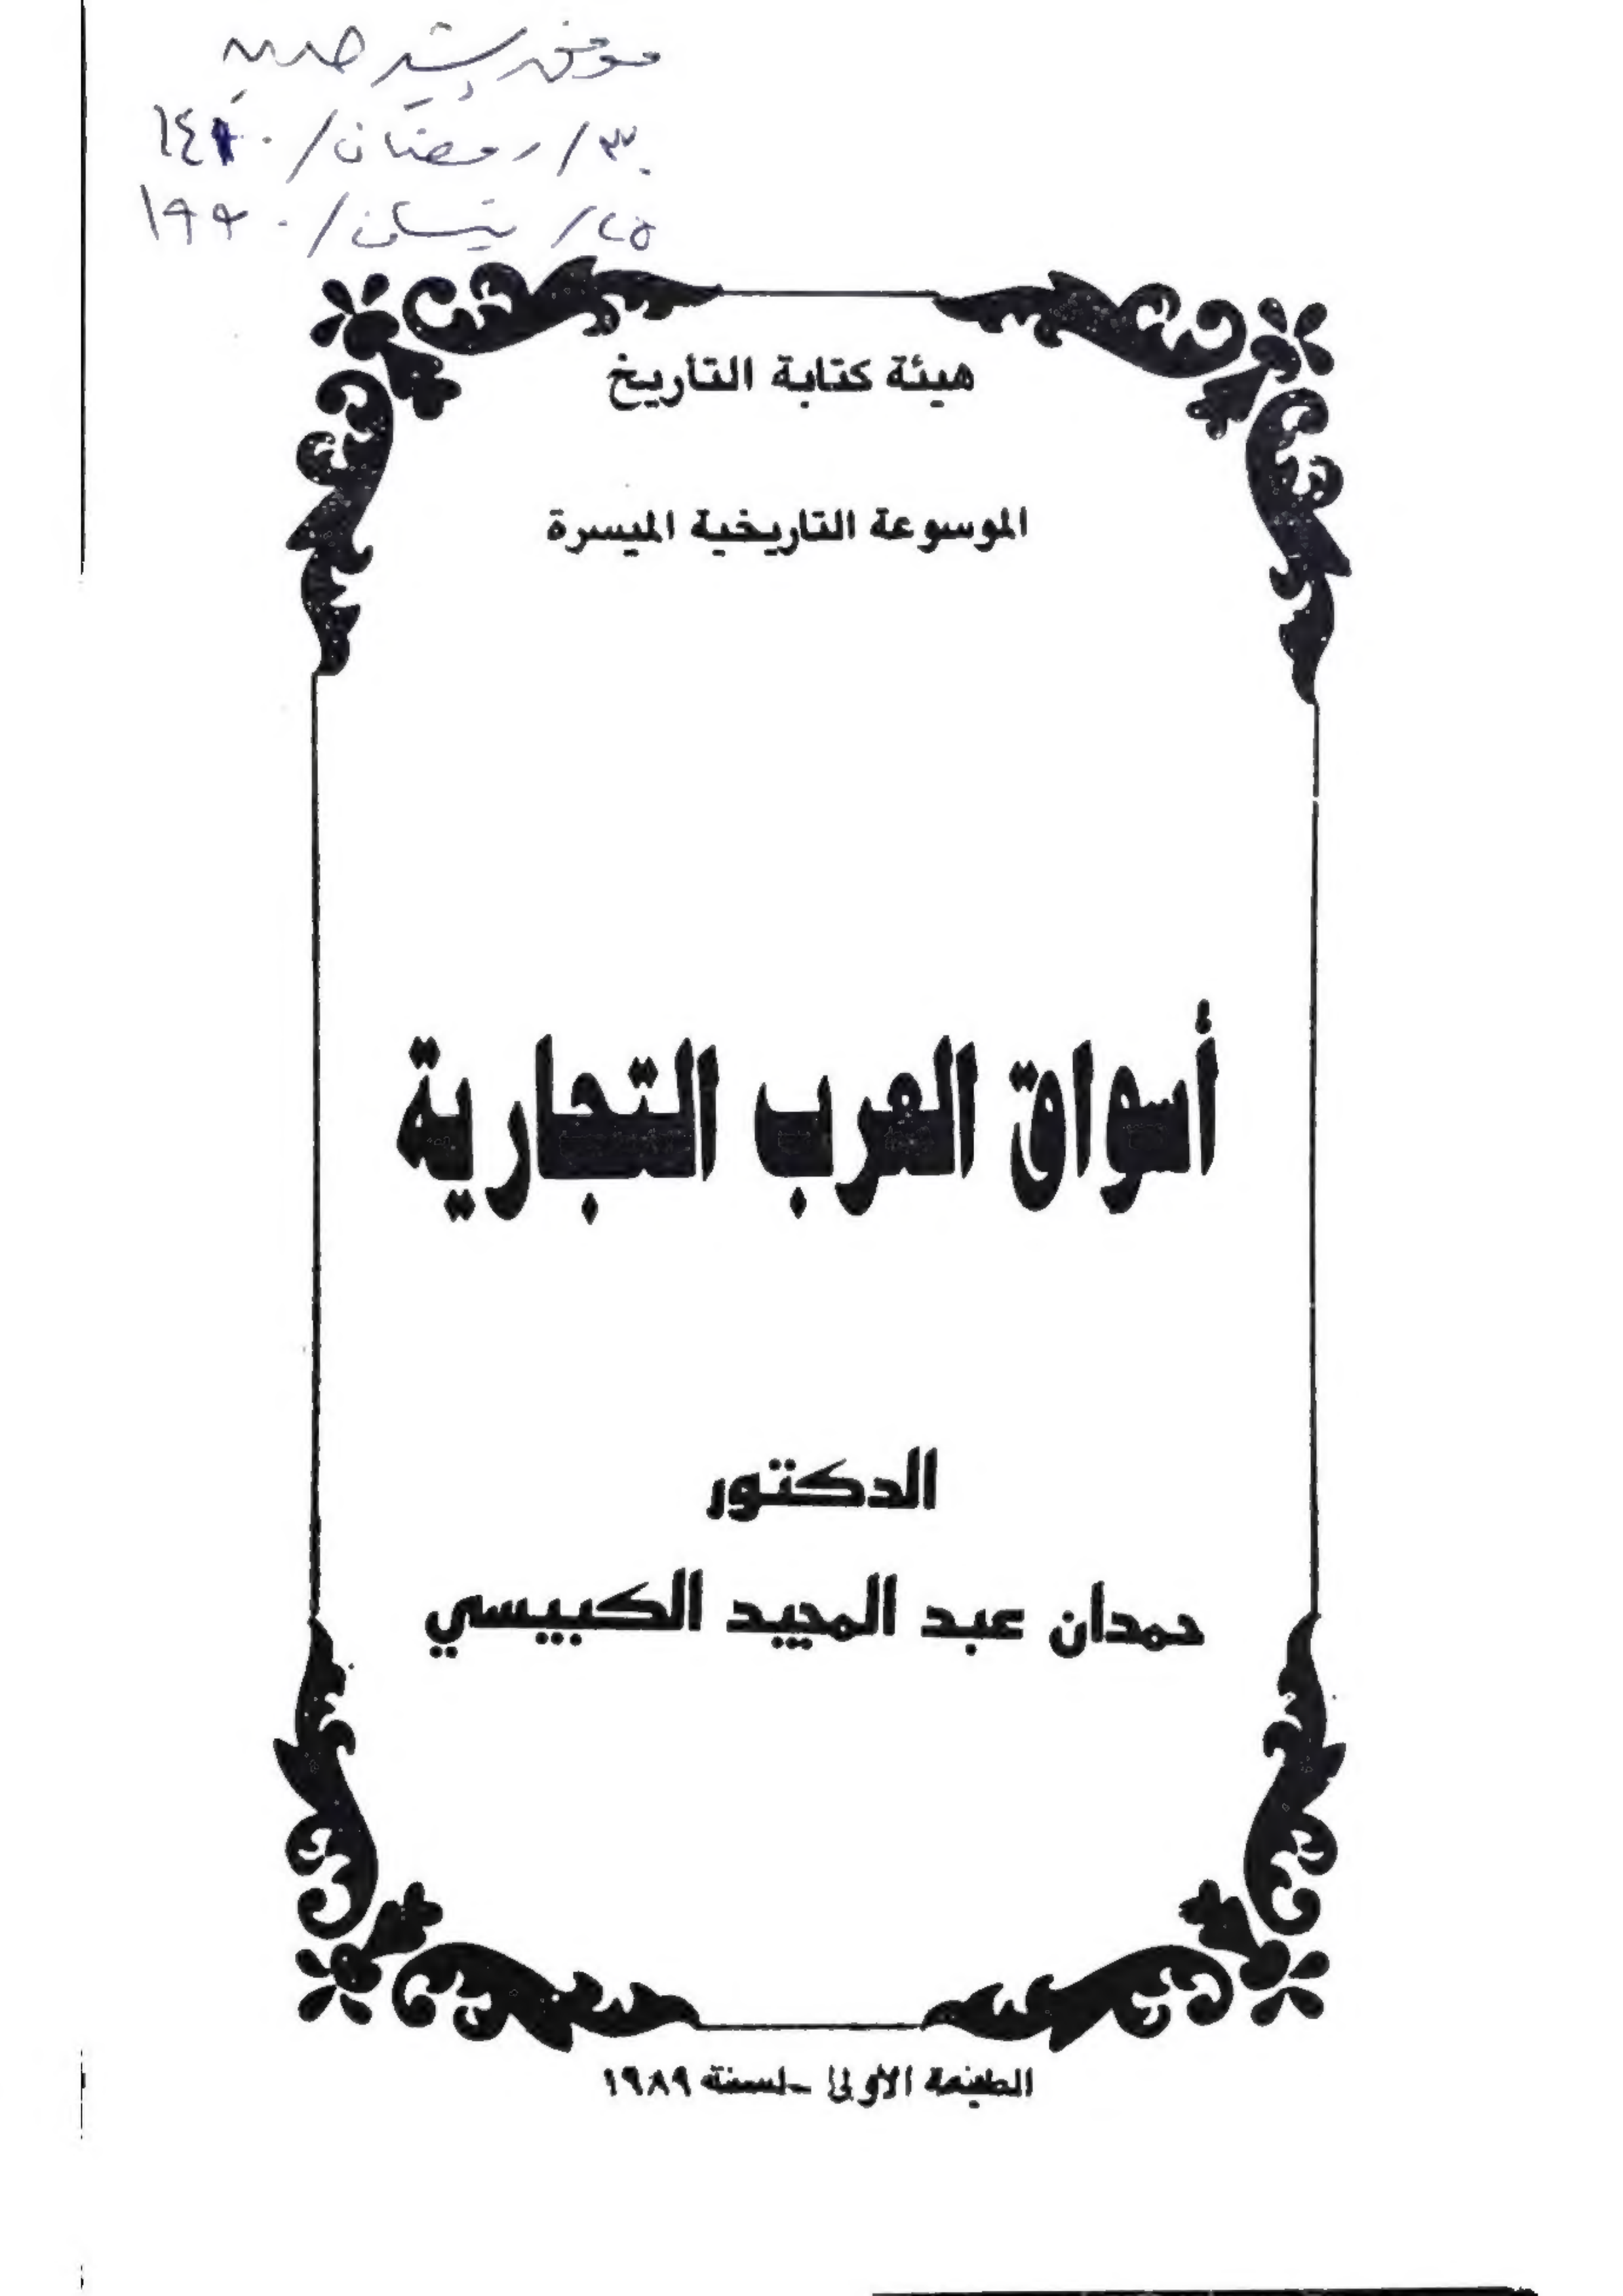 موفق رشيد
٣٠/رمضان/١٤١٠
٢٥/نيسان/١٩٩٠
هيئة كتابة التأريخ
الموسوعة التاريخية الميسرة
أسواق العرب التجارية
الدكتور
حمدان عبد المجيد الكبيسي
الطبعة الأولى - لسنة ١٩٨٩